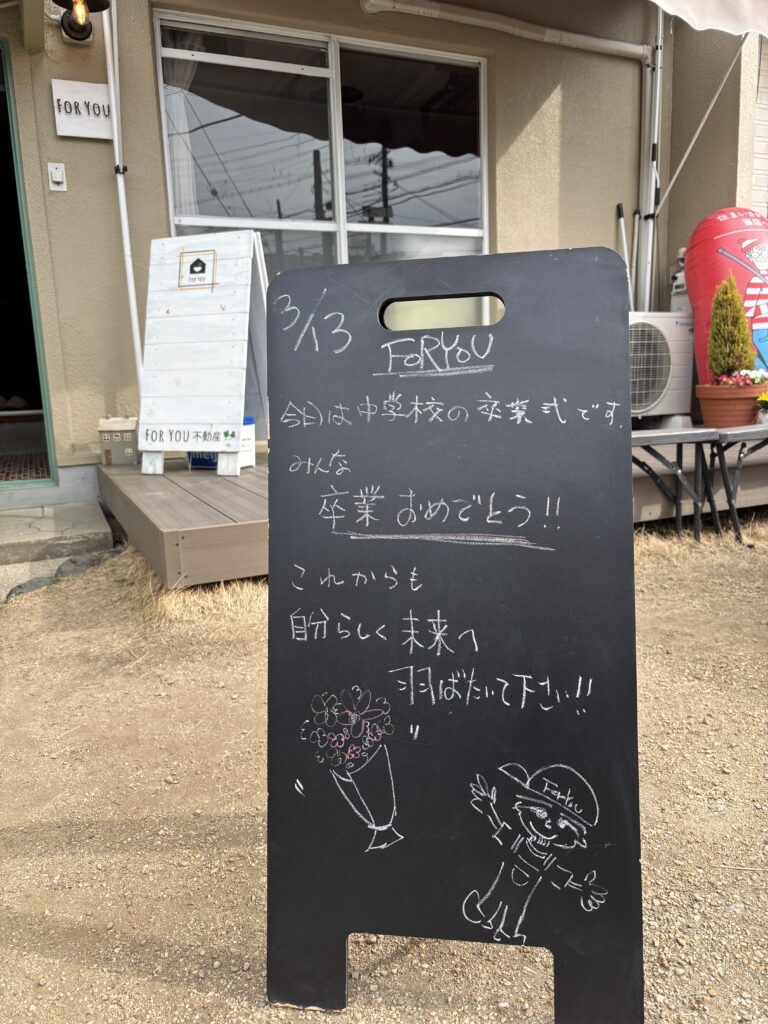 FOR YOU
FOR YOU
FOR YOU 不動産
3/13
FORYOU
今日は中学校の卒業式です。
みんな
卒業おめでとう!!
これからも
自分らしく未来へ
羽ばたいて下さい!!
ForYou